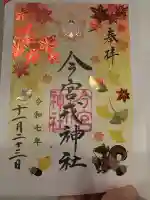 奉拝
今宮戎神社
令和七年
十一月二十三日